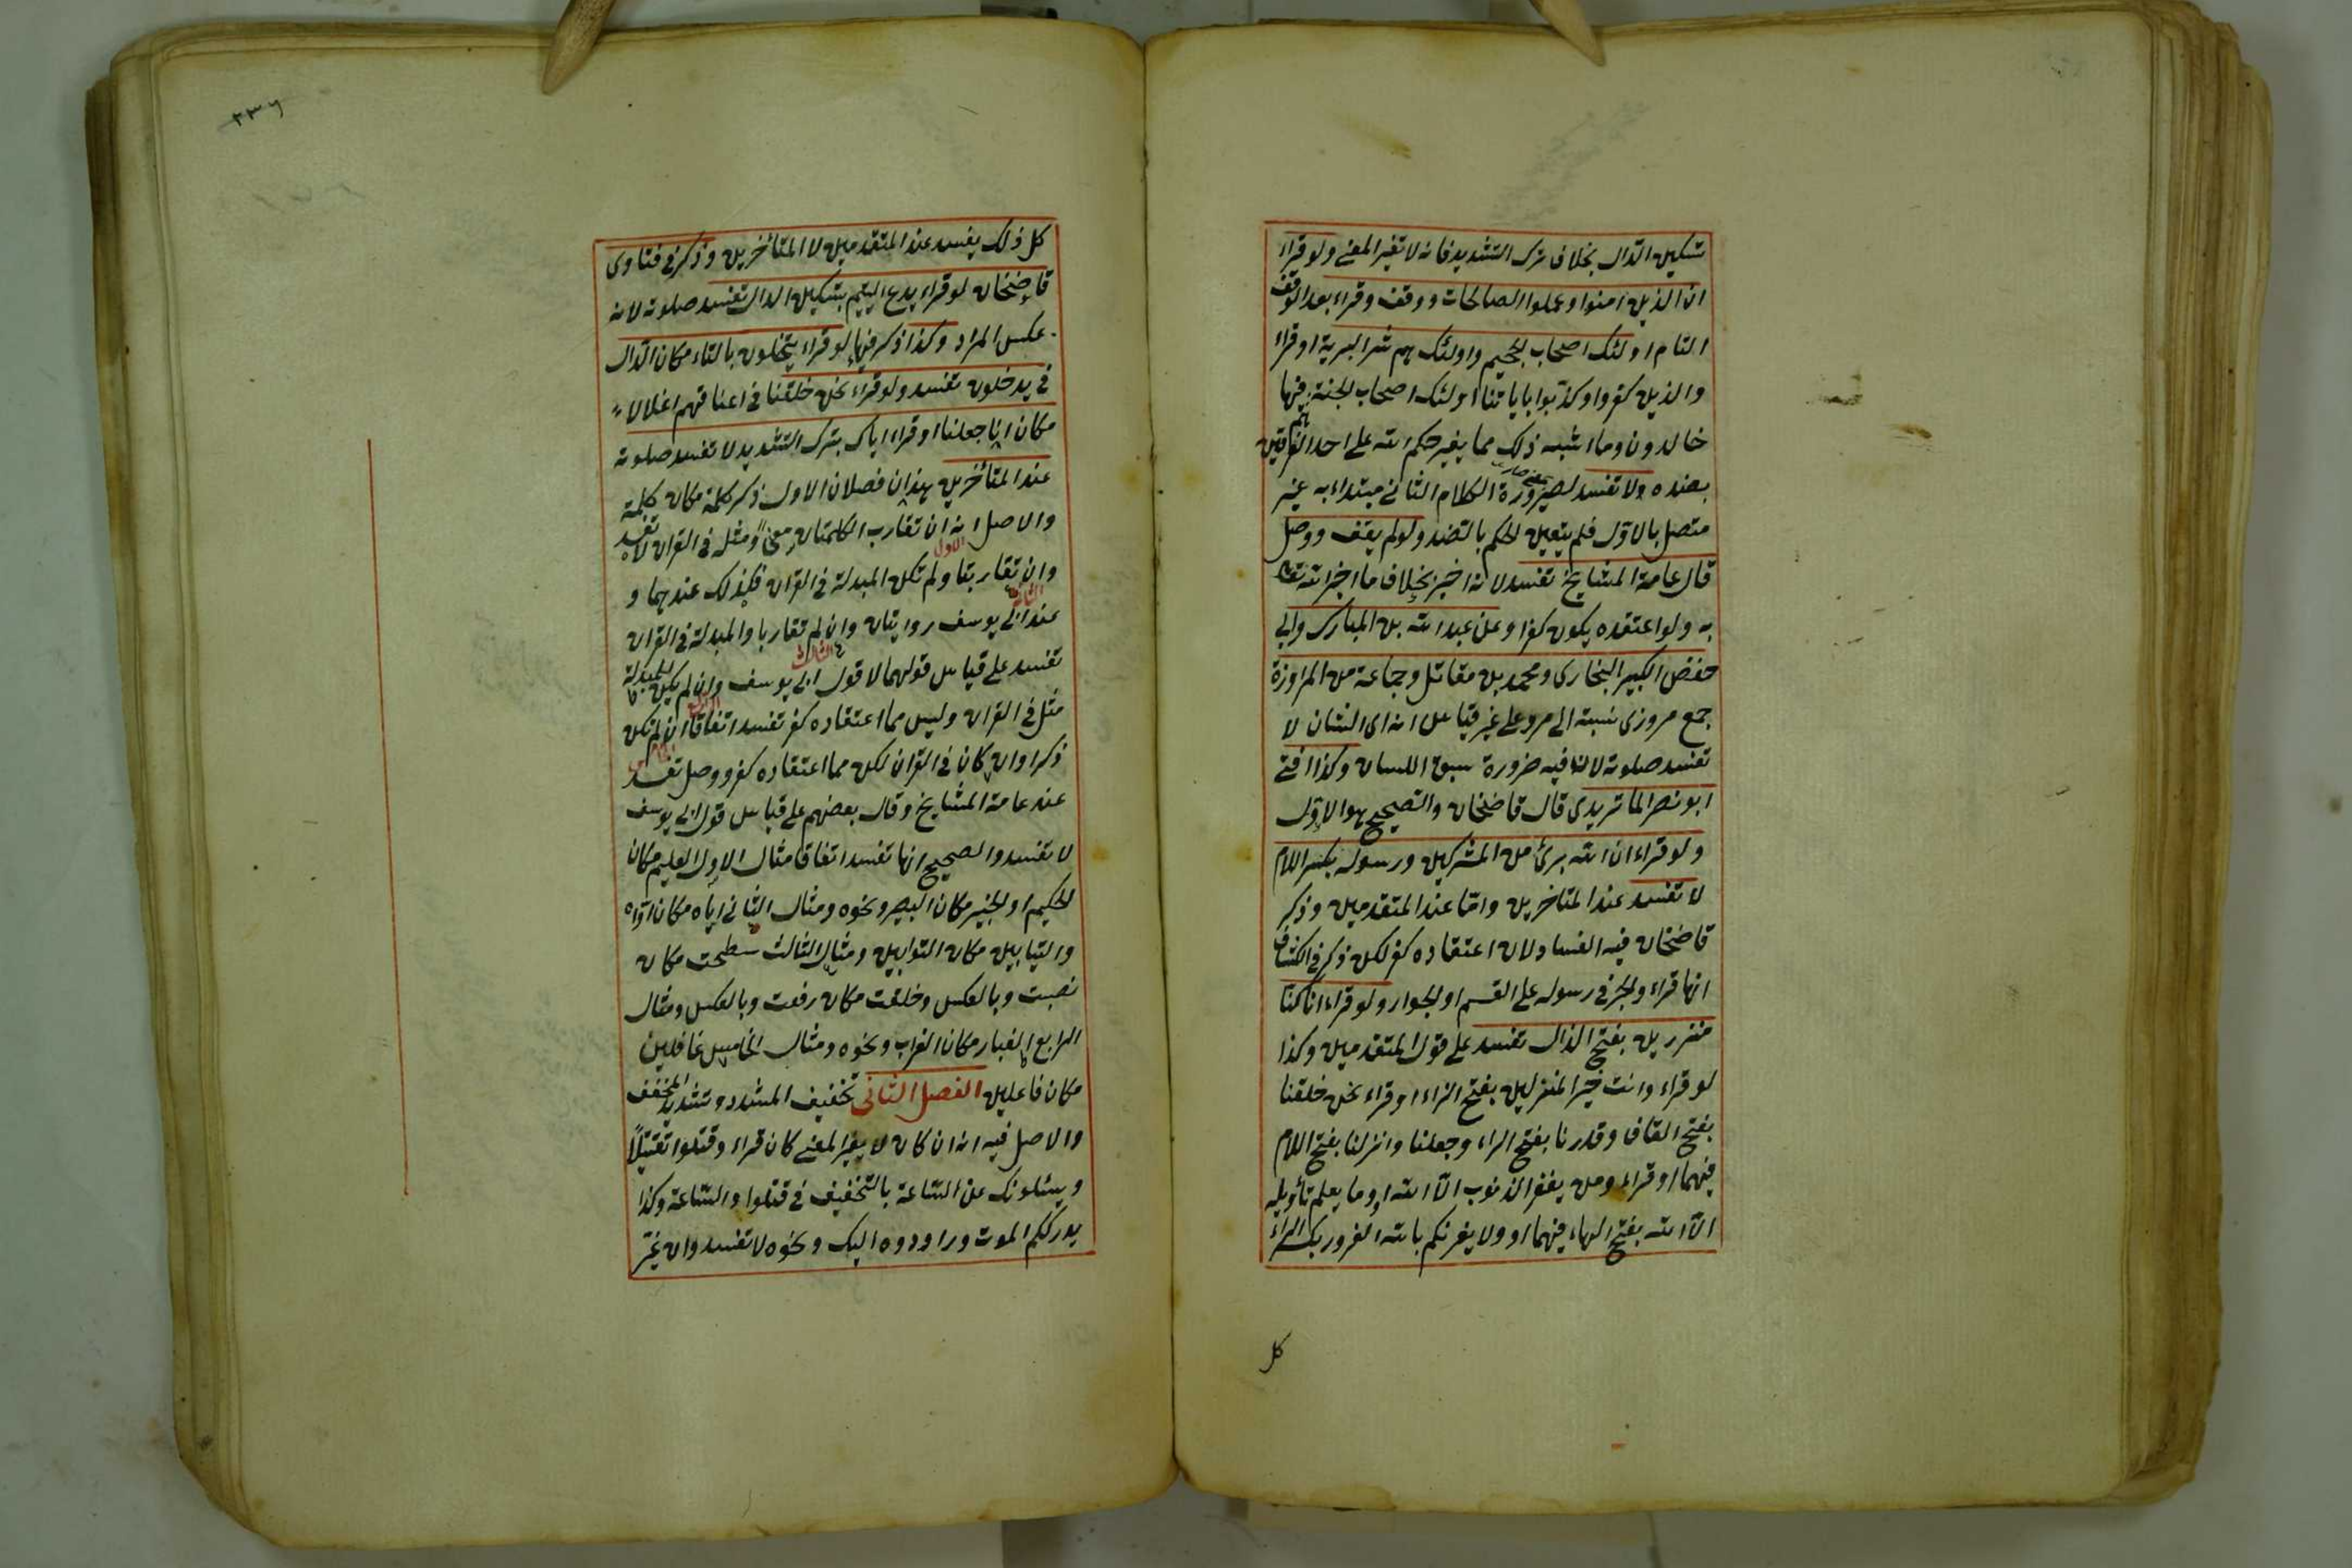 تسكين الدال بخلاف ترك التشديد فانه لا تغير المعنى ولو قراء
ان الذين امنوا وعملوا الصالحات ووقف وقراء بعد الوقف
التام اولئك اصحاب الجحيم واولئك هم شر البرية او قراء
والذين كفروا وكذبوا باياتنا اولئك اصحاب الجنة هم فيها
خالدون وما اشبه ذلك مما يغير حكم الله على احد الفريقين
بضده ولا تفسد لصيرورة الكلام الثاني مبتداء به غير
متصل بالاول فلم يتعين الحكم بالضد ولو لم يقف ووصل
قال عامة المشايخ تفسد لانه اخبر بخلاف ما اخبر الله تعا
به ولو اعتقده يكون كفرا وعن عبد الله بن المبارك وابي
حفص الكبير البخاري ومحمد بن مقاتل وجماعة من المراوزة
جمع مروزى نسبة الى مرو على غير قياس انه اى الشان لا
تفسد صلوته لان فيه ضرورة سبق اللسان وكذا افتى
ابو نصر الماتريدى قال قاضخان والصحيح هو الاول
ولو قراء ان الله برئ من المشركين ورسوله بكسر اللام
لا تفسد عند المتاخرين واما عند المتقدمين وذكر
قاضخان فيه الفساد لان اعتقاده كفر لكن ذكر في الكشاف
انها قراء والجر في رسوله على القسم او الجوار ولو قراء انا كنا
منذرين بفتح الذال تفسد على قول المتقدمين وكذا
لو قراء وانت خير المنزلين بفتح الزاء او قراء نحن خلقنا
بفتح القاف وقدرنا بفتح الراء وجعلنا وانزلنا بفتح اللام
فيهما او قراء ومن يغفر الذنوب الا الله او وما يعلم تأويله
الا الله بفتح الهاء فيهما او ولا يغرنكم بالله الغرور بكسر الراء
كل
٢٣٦
كل ذلك يفسد عند المتقدمين لا المتأخرين وذكر في فتاوى
قاضخان لو قراء يدع اليتيم بتسكين الدال تفسد صلوته لانه
عكس المراد وكذا ذكر فيها لو قراء يتخلون بالتاء مكان الدال
في يدخلون تفسد ولو قراء نحن خلقنا في اعناقهم اغلالا
مكان انا جعلنا او قراء اياك بترك التشديد لا تفسد صلوته
عند المتأخرين بهذان فصلان الاول ذكر كلمة مكان كلمة
والاصل انه ان تقارب الكلمتان معنى ومثله في القران لا تفسد
الاول
وان تقاربتا ولم تكن المبدلة في القران فكذلك عندهما و
الثاني
عند ابي يوسف روايتان وان لم تقاربا والمبدلة في القران
الثالث
تفسد على قياس قولهما لا قول ابي يوسف وان لم يكن للمبدلة
الرابع
مثل في القران وليس مما اعتقاده كفر تفسد اتفاقا ان لم تكن
ذكرا وان كان في القران لكن مما اعتقاده كفر ووصل تفسد
عند عامة المشايخ وقال بعضهم على قياس قول ابي يوسف
لا تفسد والصحيح انها تفسد اتفاقا مثال الاول العليم مكان
الحكيم او الخبير مكان البصير ونحوه ومثال الثاني اياه مكان اواه
والتيابين مكان التوابين ومثال الثالث سطحت مكان
نصبت وبالعكس وخلقت مكان رفعت وبالعكس ومثال
الرابع الغبار مكان الغراب ونحوه ومثال الخامس غافلين
مكان فاعلين الفصل الثانى تخفيف المشدد وتشديد المخفف
والاصل فيه انه ان كان لا يغير المعنى كان قراء وقتلوا تقتيلا
ويسئلونك عن الساعة بالتخفيف في قتلوا والساعة وكذا
يدرككم الموت وراودوه اليك ونحوه لا تفسد وان غير